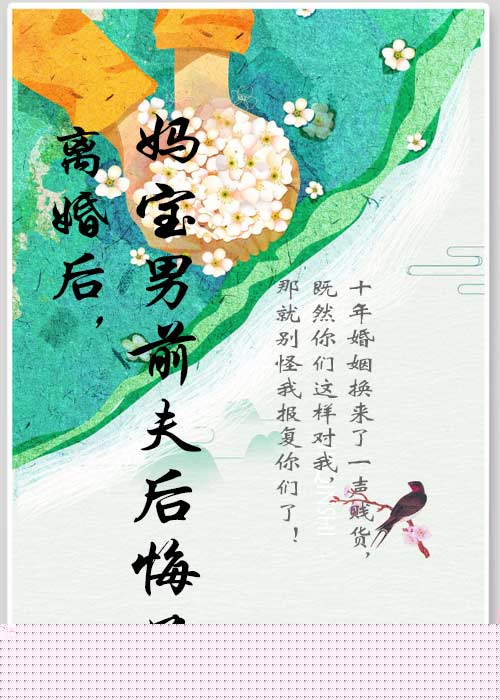 离婚后，
妈宝男前夫后悔
十年婚姻换来了一声贱货，
既然你们这样对我，
那就别怪我报复你们了！